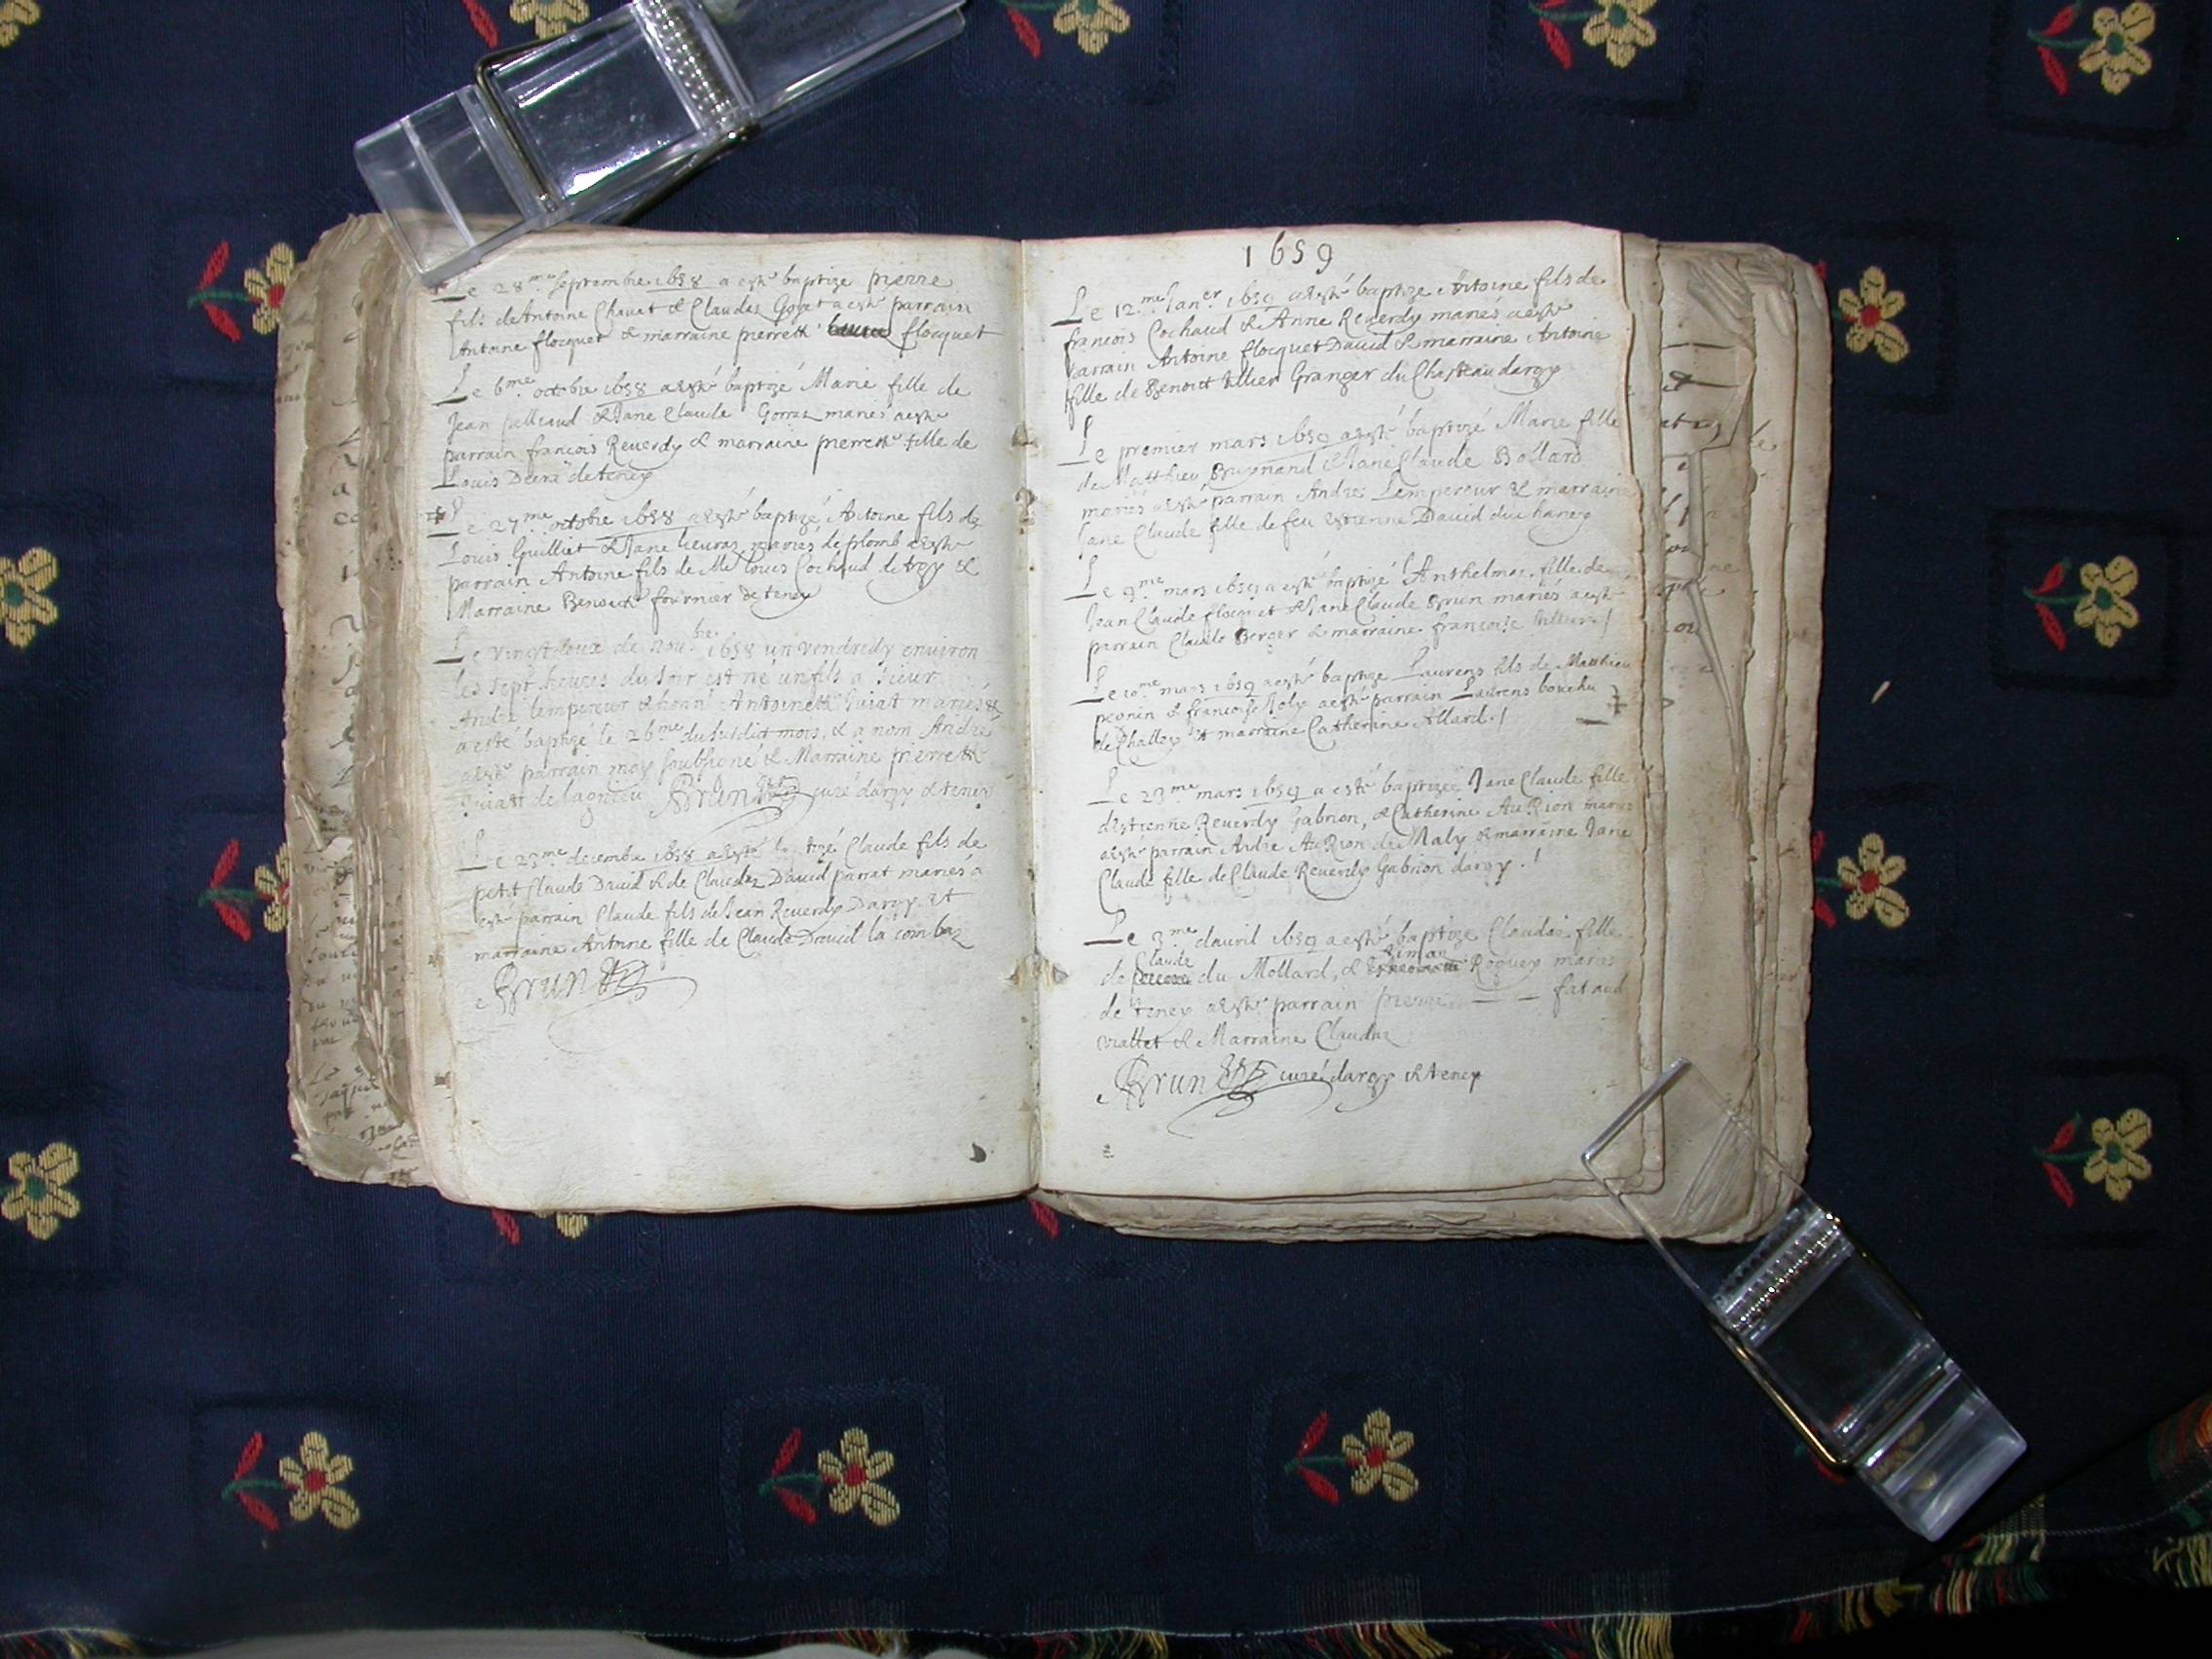 Le 28me septembre 1658 a esté baptizé pierre
fils de Antoine Chavat & Claudaz Goyet a esté parrain
Antoine flocquet & marraine pierrette flocquet
Le 6me octobre 1658 a esté baptizé Marie fille de
Jean & Jane Claude Gorraz mariés a esté
parrain francois Reverdy & marraine pierrette fille de
Louis de teney
Le 27me octobre 1658 a esté baptizé Antoine fils de
Louis Guilliet & Jane mariés de plomb a esté
parrain Antoine fils de Me Louis Cochaud &
Marraine Benoicte fournier de teney
Le vingt deux de novbre 1658 un vendredy environ
les sept heures du soir est né un fils a sieur
André lempereur & honn Antoinette mariés &
a esté baptizé le 26me du susdict mois, & a nom André
a esté parrain moy soubsigné & Marraine pierrette
de lagnieu Brun curé dargy & teney
Le 23me decembre 1658 a esté baptizé Claude fils de
petit Claude David & de Claudaz David parrat mariés a
esté parrain Claude fils de Jean Reverdy Dargy et
marraine Antoine fille de Claude la combaz
Brun
1659
Le 12me Janer 1659 a esté baptize Antoine fils de
francois Cochaud & Anne Reverdy mariés a esté
parrain Antoine flocquet David & marraine Antoine
fille de Benoict tillier Granger du Chasteau dargy
Le premier mars 1659 a esté baptizé Marie fille
de Matthieu & Jane Claude Bollard
mariés a esté parrain André Lempereur & marraine
Jane Claude fille de feu Estienne David du chaney
Le 9me mars 1659 a esté baptizé Anthelmaz fille de
Jean Claude flocquet & Jane Claude Brun mariés a esté
parrain Claude Berger & marraine francoise
Le 10me mars 1659 a esté baptize Laurens fils de Matthieu
peonin & francoise Joly a esté parrain Laurens bouchu
de Challey & marraine Catherine Allard.
Le 23me mars 1659 a esté baptizée Jane Claude fille
destienne Reverdy Gabrion, & Catherine AuRion mariés
a esté parrain André AuRion de Maly & marraine Jane
Claude fille de Claude Reverdy Gabrion dargy.
Le 3me davril 1659 a esté baptize Claudaz fille
Claude
de du Mollard, & Roguey mariés
de teney a esté parrain pierre — — fataud
viallet & Marraine Claudaz
Brun curé dargy & teney